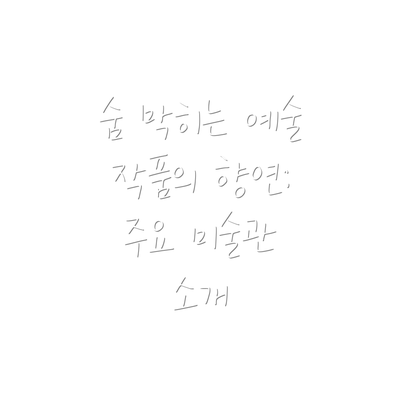 숨 막히는 예술
작품의 향연:
주요 미술관
소개